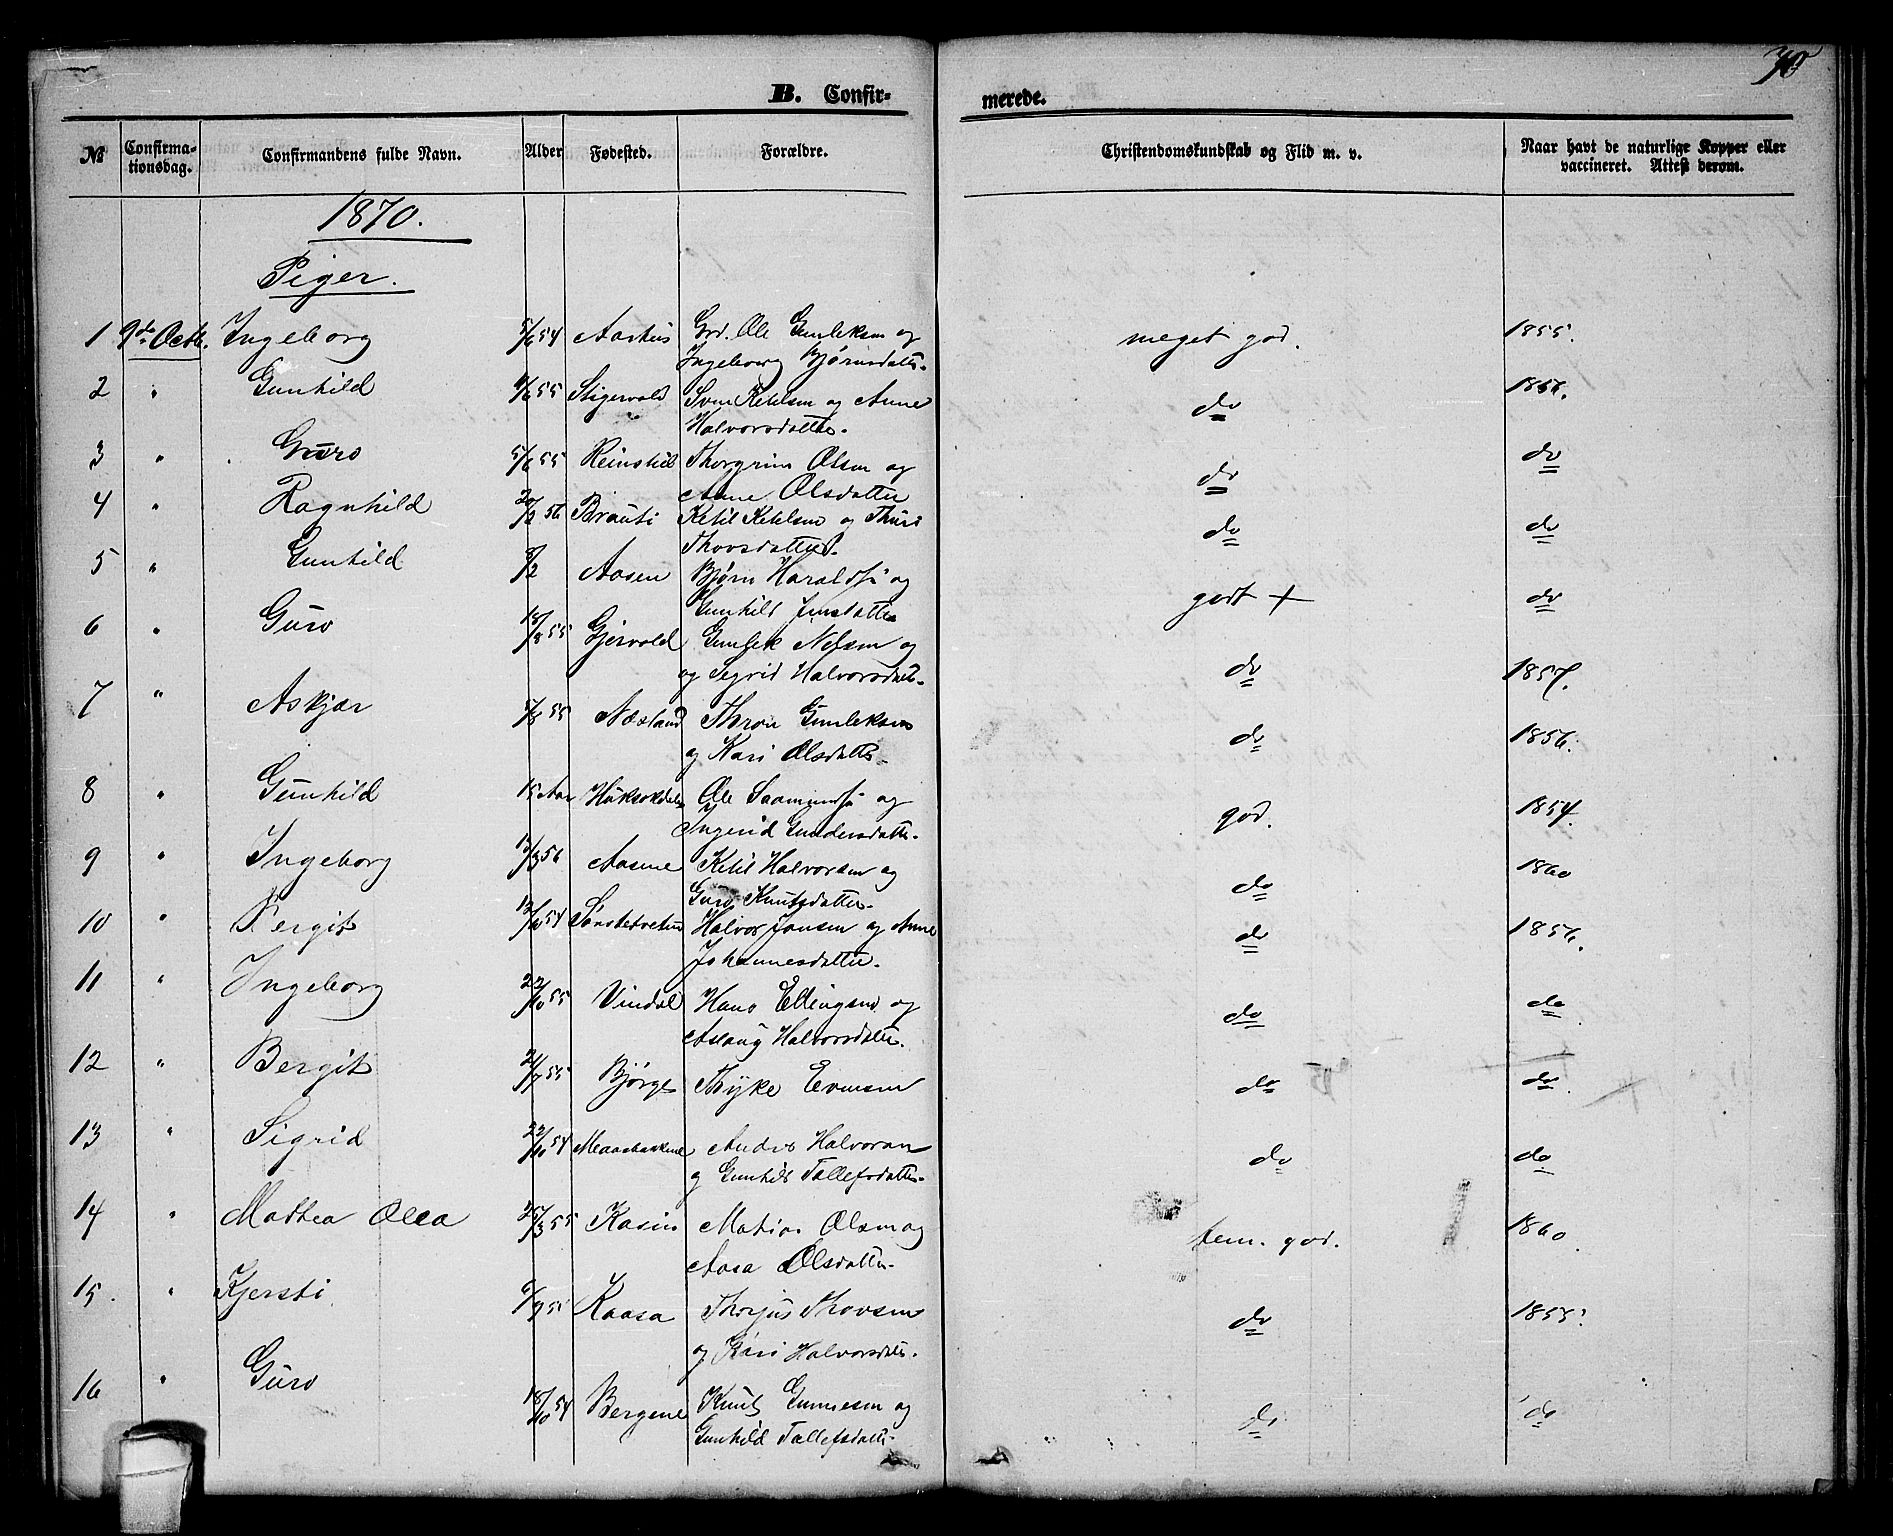 70
B. Confir-
merede.
№
Confirma-
tionsdag.
Confirmandens fulde Navn.
Alder
Fødested.
Forældre.
Christendomskundskab og Flid m. v.
Naar havt de naturlige Kopper eller
vaccineret. Attest derom.
1870.
Piger.
1 9de Octb. Ingeborg 5/6 54 Aarhus Grd. Ole Gunleksen og meget god. 1855.
Ingeborg Bjørnsdatter.
2 " Gunhild 9/6 55 Stigervold Sven Ketelsen og Anne do 1856.
Halvorsdatter.
3 " Guro 5/6 55 Reinstil Thorgrim Olsen og do do
Anne Olsdatter
4 " Ragnhild 20/2 56 Brauti Ketil Ketelsen og Thuri do do
Thovsdatter.
5 " Gunhild 8/2 Aasen Bjørn Haralds. og godt + do
Gunhild Jensdatter
6 " Guro 18/8 55 Gjervold Gunlek Nelsen og do 1857.
og Sigrid Halvorsdatter.
7 " Askjær 5/8 55 Næsland Thron Gunleksen do 1856.
og Kari Olsdatter.
8 " Gunhild 15 Aar Ole Saamunds. og god. 1854.
Ingerid Gundersdatter.
9 " Ingeborg 13/3 56 Aasene Ketil Halvorsen og do 1860
Guro Knutsdatter.
10 " Bergit 13/10 54 Halvor Jansen og Anne do 1856.
Johannesdatter.
11 " Ingeborg 22/10 55 Vindal Hans Ellingsen og do do
Aslaug Halvorsdatter.
12 " Bergit 21/7 55 Bjørge Thyke Evensen do do
13 " Sigrid 22/10 54 Anders Halvorsen do do
og Gunhild Tallefsdatter.
14 " Mathea Olea 25/3 55 Kasin Matias Olsen og tem. god. 1860.
Aasa Olsdatter.
15. " Kjersti 6/9 55 Kaasa Thorjus Thovsen do 1855.
og Kari Halvorsdatter.
16 " Guro 18/10 54 Bergene Knut Gunnesen og do do
Gunhild Tallefsdatter.